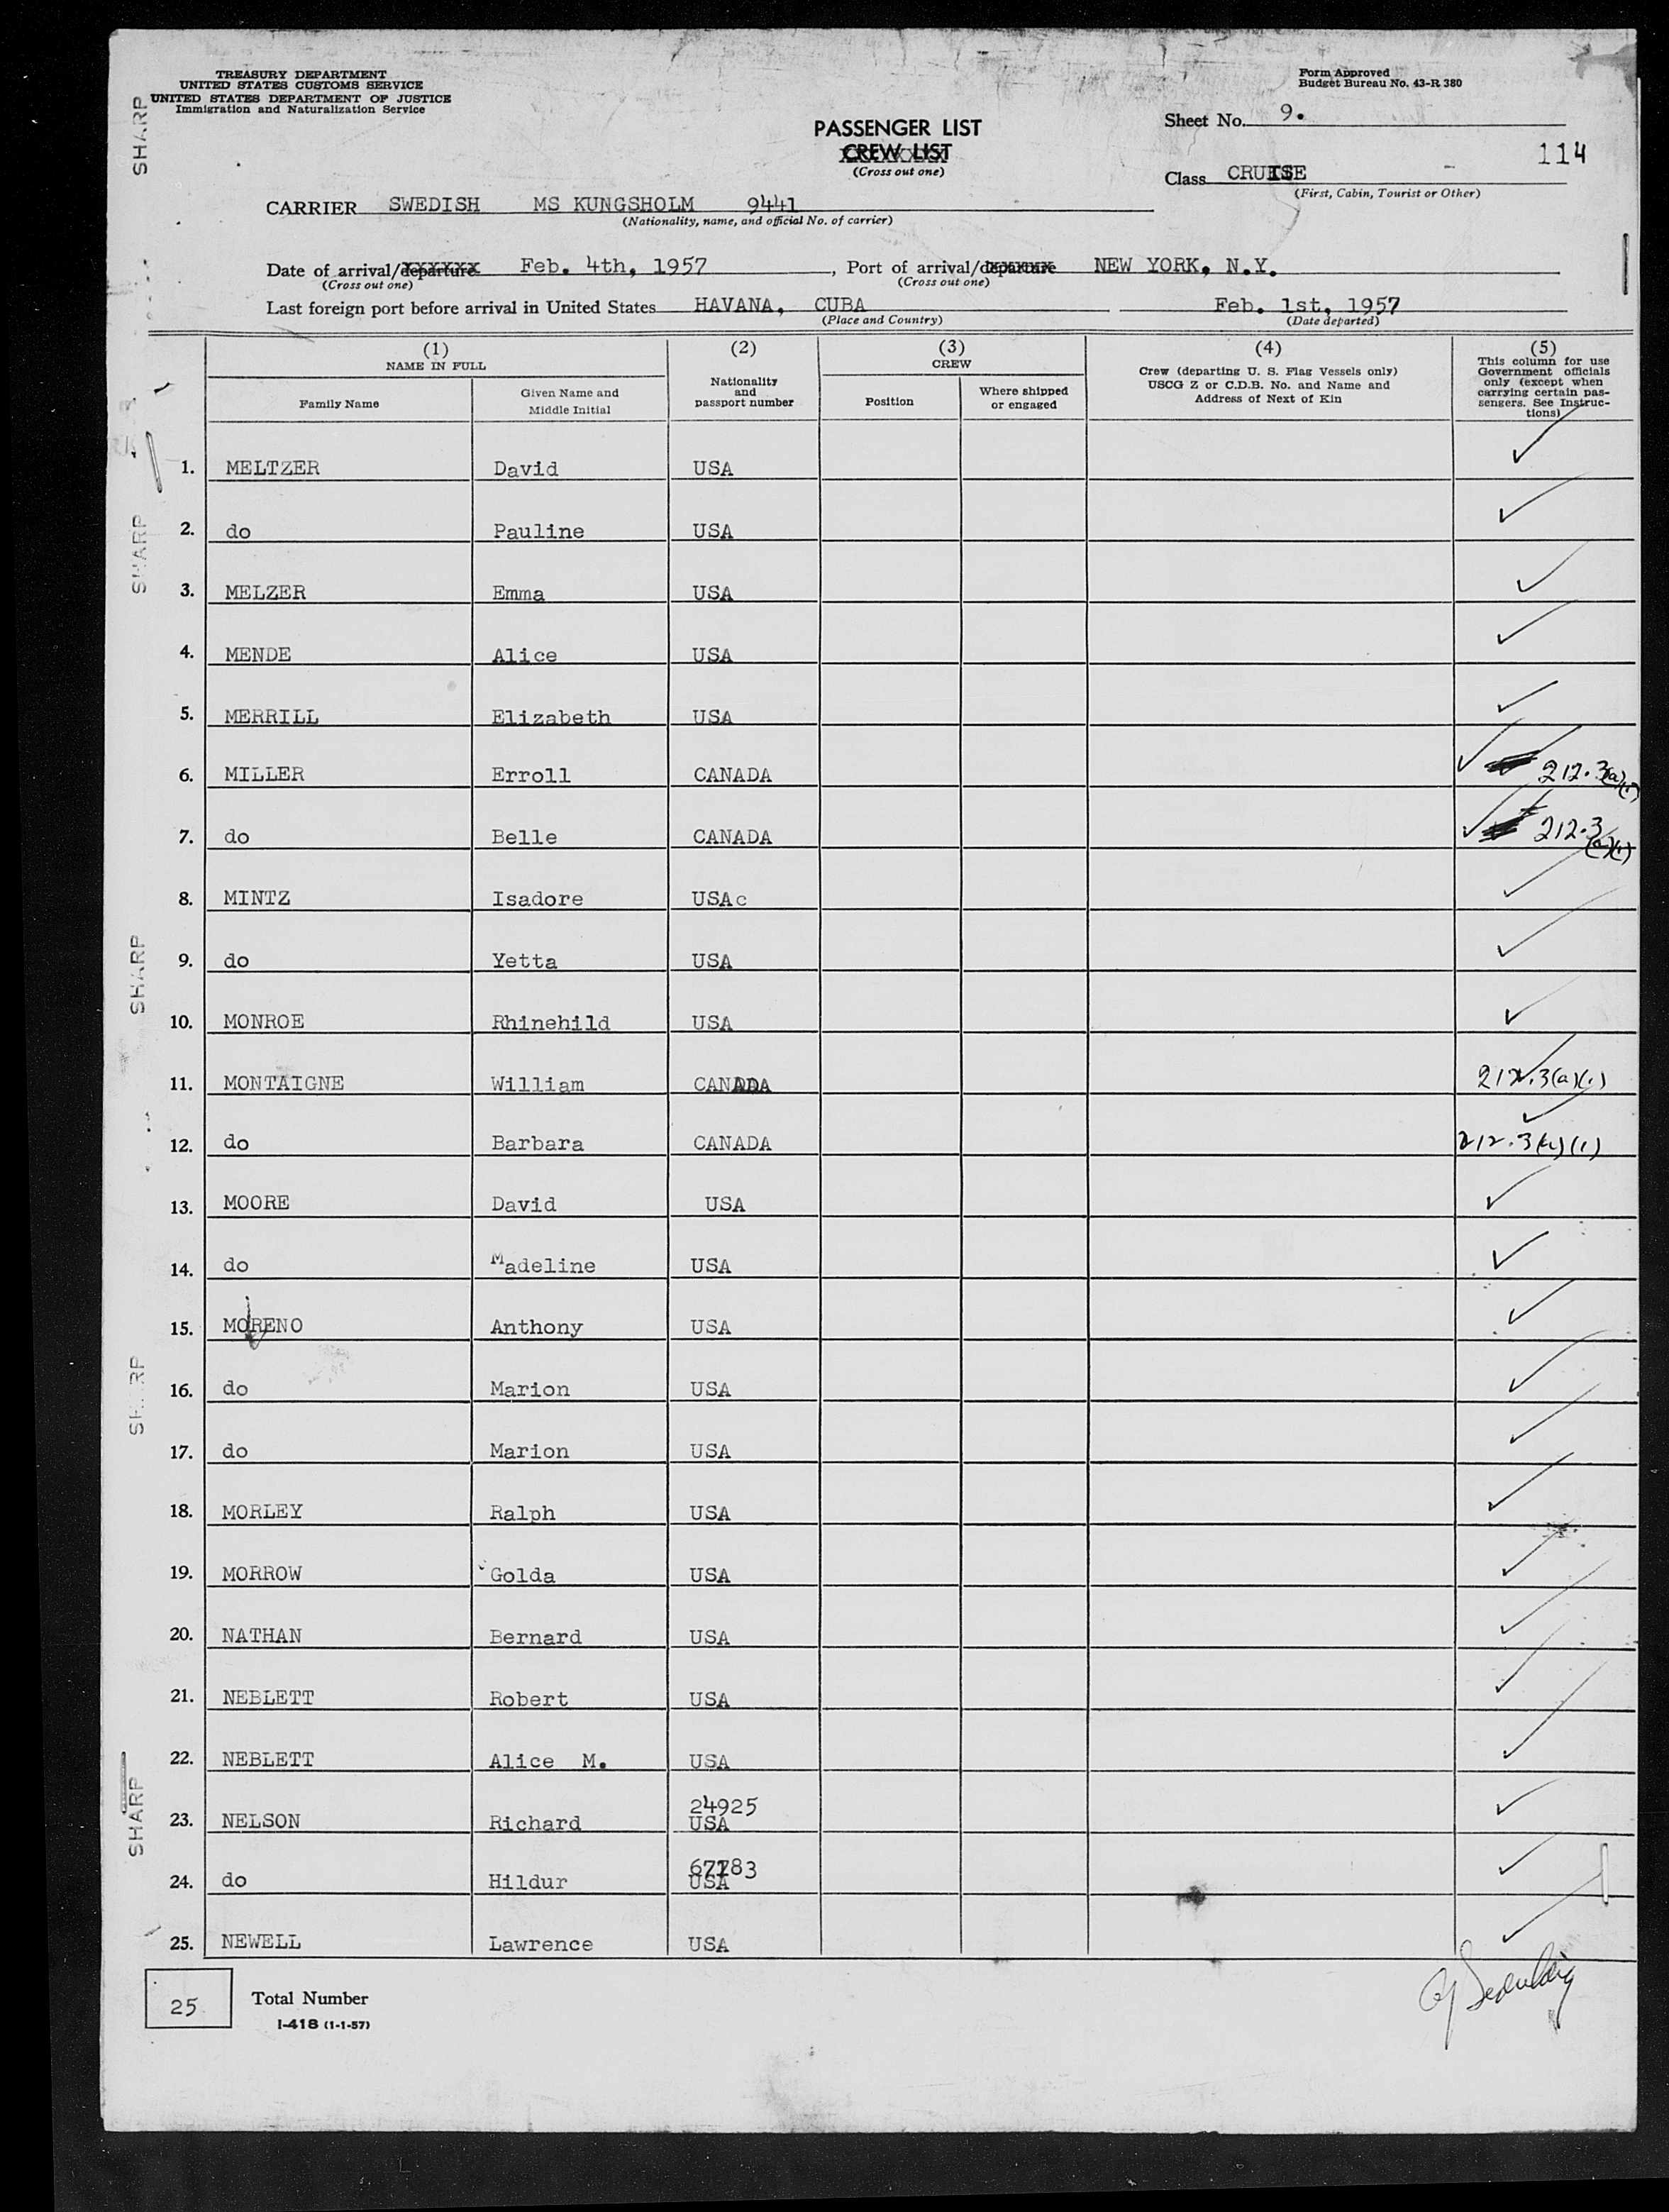 TREASURY DEPARTMENT
UNITED STATES CUSTOMS SERVICE
UNITED STATES DEPARTMENT OF JUSTICE
Immigration and Naturalization Service
Form Approved
Budget Bureau No. 43-R 380
PASSENGER LIST
CREW LIST
(Cross out one)
Sheet No. 9.
114
Class CRUISE
(First, Cabin, Tourist or Other)
CARRIER SWEDISH MS KUNGSHOLM 9441
(Nationality, name, and official No. of carrier)
Date of arrival/departure Feb. 4th, 1957, Port of arrival/departure NEW YORK, N.Y.
(Cross out one) (Cross out one)
Last foreign port before arrival in United States HAVANA, CUBA Feb. 1st, 1957
(Place and Country) (Date departed)
(1) (2) (3) (4) (5)
NAME IN FULL
Family Name
Given Name and
Middle Initial
Nationality
and
passport number
CREW
Position
Where shipped
or engaged
Crew (departing U. S. Flag Vessels only)
USCG Z or C.D.B. No. and Name and
Address of Next of Kin
This column for use
Government officials
only (except when
carrying certain pas-
sengers. See Instruc-
tions)
1. MELTZER David USA
2. do Pauline USA
3. MELZER Emma USA
4. MENDE Alice USA
5. MERRILL Elizabeth USA
6. MILLER Erroll CANADA 212.3(a)(1)
7. do Belle CANADA 212.3(a)(1)
8. MINTZ Isadore USAc
9. do Yetta USA
10. MONROE Rhinehild USA
11. MONTAIGNE William CANADA 212.3(a)(1)
12. do Barbara CANADA 212.3(a)(1)
13. MOORE David USA
14. do Madeline USA
15. MORENO Anthony USA
16. do Marion USA
17. do Marion USA
18. MORLEY Ralph USA
19. MORROW Golda USA
20. NATHAN Bernard USA
21. NEBLETT Robert USA
22. NEBLETT Alice M. USA
24925
23. NELSON Richard USA
24. do Hildur USA
25. NEWELL Lawrence USA
25 Total Number
I-418 (1-1-57)
SHARP
SHARP
SHARP
SHARP